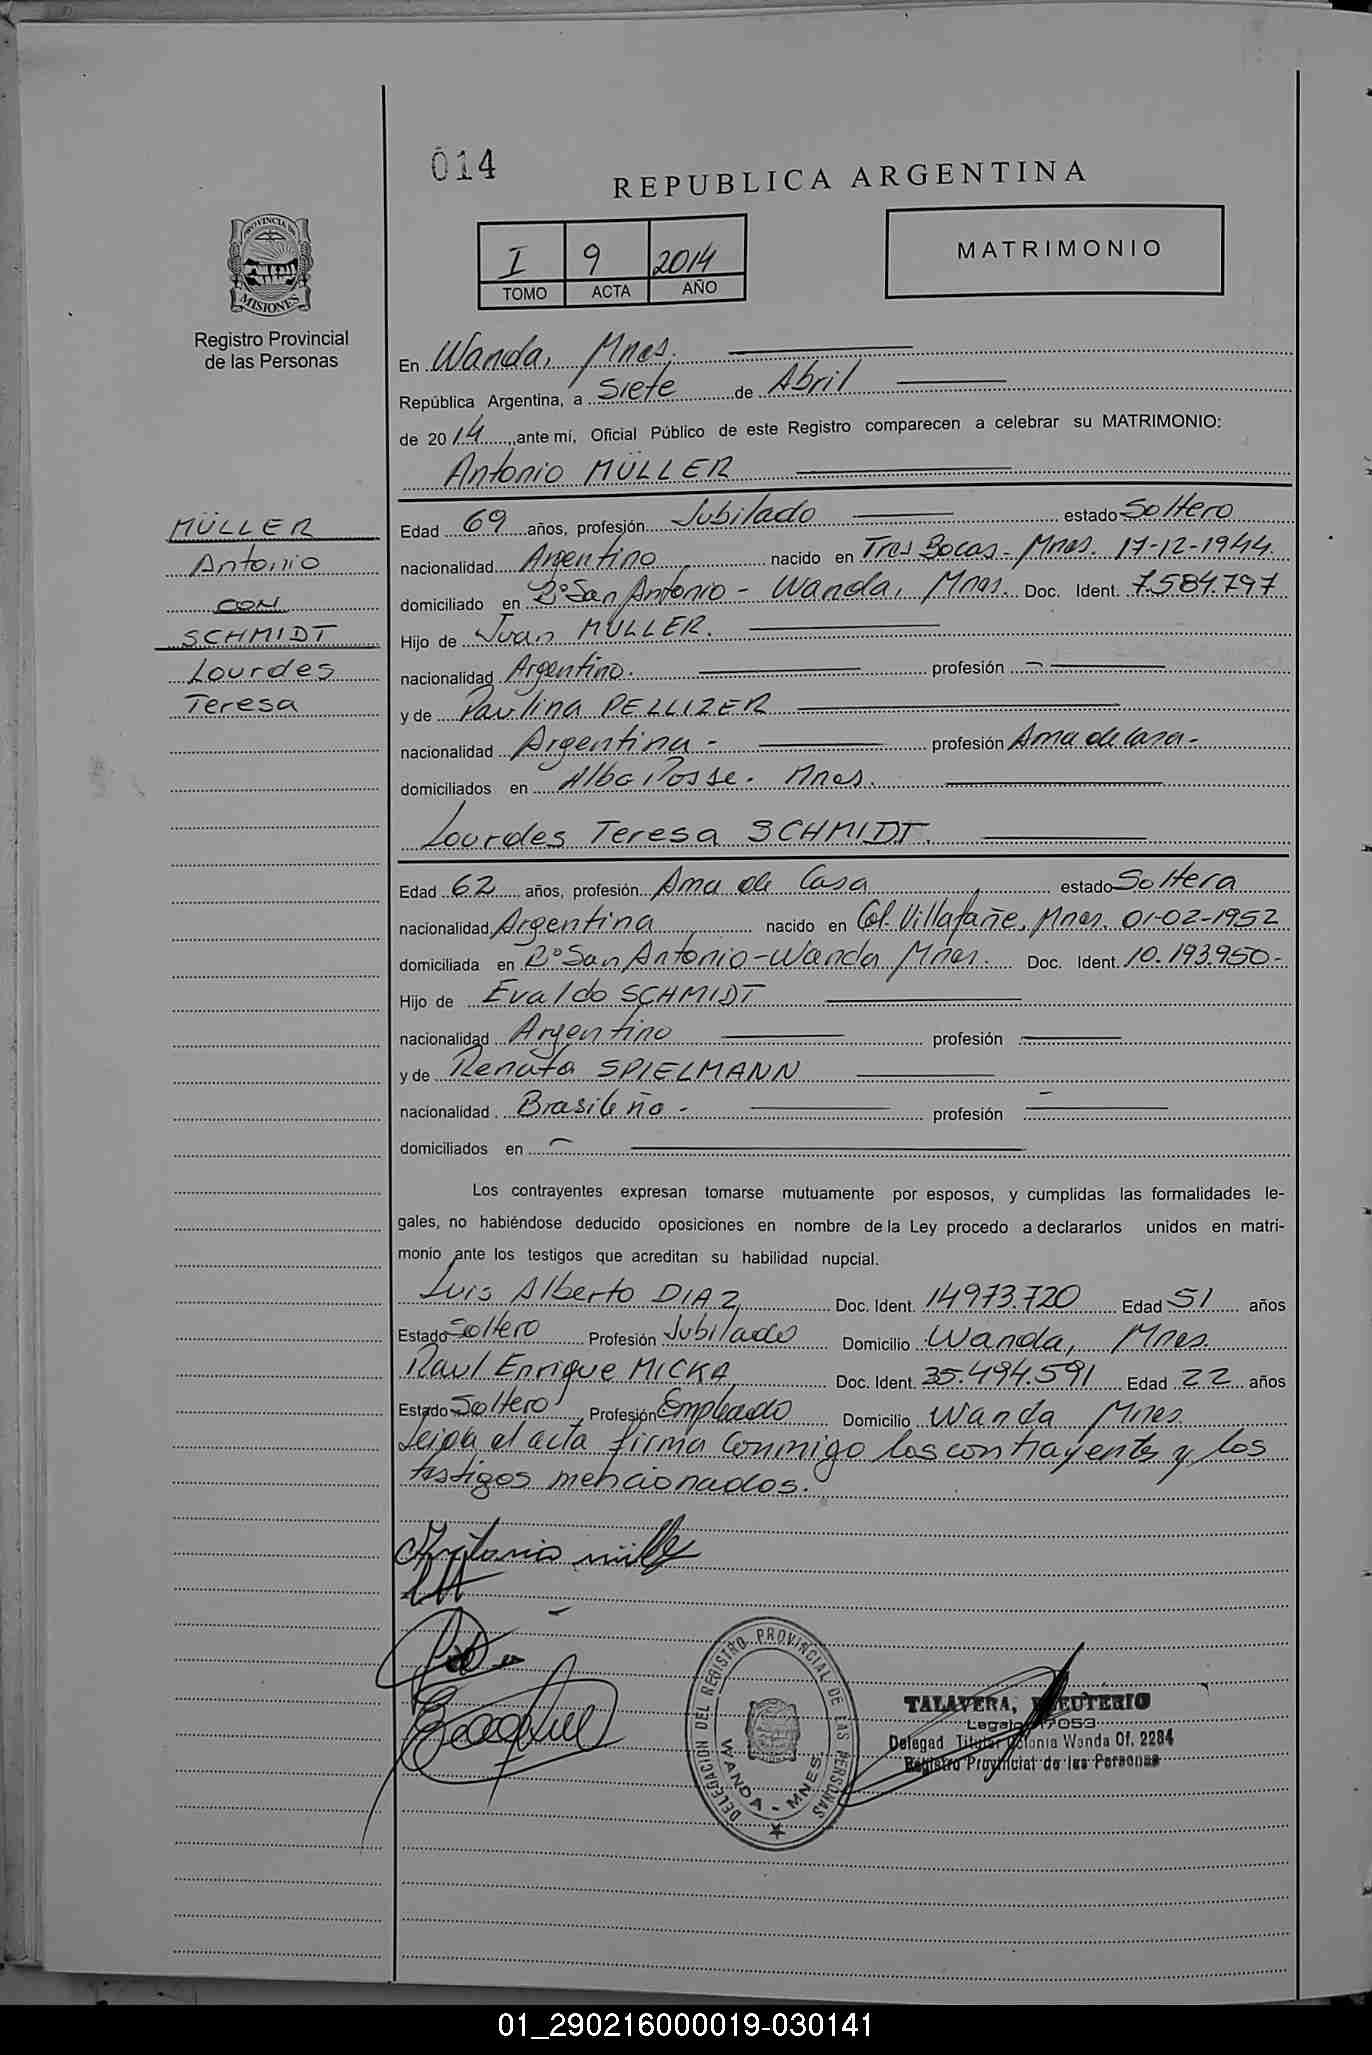 014
REPUBLICA ARGENTINA
PROVINCIA DE
MISIONES
Registro Provincial
de las Personas
I 9 2014
TOMO ACTA AÑO
MATRIMONIO
En Wanda, Mnes.
República Argentina, a Siete de Abril
de 2014, ante mí, Oficial Público de este Registro comparecen a celebrar su MATRIMONIO:
Antonio MÜLLER
MÜLLER
Antonio
CON
SCHMIDT
Lourdes
Teresa
Edad 69 años, profesión Jubilado estado Soltero
nacionalidad Argentino nacido en Tres Bocas - Mnes. 17-12-1944
domiciliado en Bº San Antonio - Wanda, Mnes. Doc. Ident. 7.584.797
Hijo de Juan MULLER.
nacionalidad Argentino. profesión -
y de Paulina PELLIZER
nacionalidad Argentina - profesión Ama de casa -
domiciliados en Alba Posse. Mnes.
Lourdes Teresa SCHMIDT.
Edad 62 años, profesión Ama de Casa estado Soltera
nacionalidad Argentina nacido en Col. Villafañe, Mnes. 01-02-1952
domiciliada en Bº San Antonio - Wanda Mnes. Doc. Ident. 10.193.950-
Hijo de Evaldo SCHMIDT
nacionalidad Argentino profesión
y de Renata SPIELMANN
nacionalidad Brasileña - profesión -
domiciliados en -
Los contrayentes expresan tomarse mutuamente por esposos, y cumplidas las formalidades le-
gales, no habiéndose deducido oposiciones en nombre de la Ley procedo a declararlos unidos en matri-
monio ante los testigos que acreditan su habilidad nupcial.
Luis Alberto DIAZ Doc. Ident. 14973.720 Edad 51 años
Estado Soltero Profesión Jubilado Domicilio Wanda, Mnes.
Raul Enrique MICKA Doc. Ident. 35.494.591 Edad 22 años
Estado Soltero Profesión Empleado Domicilio Wanda Mnes.
Leida el acta firma conmigo los contrayentes y los
testigos mencionados.
Antonio müller
DELEGACION DEL REGISTRO PROVINCIAL DE LAS PERSONAS
WANDA - MNES.
TALAVERA, ELEUTERIO
Legajo 7053
Delegad Titular Colonia Wanda Of. 2284
Registro Provincial de las Personas
01_290216000019-030141